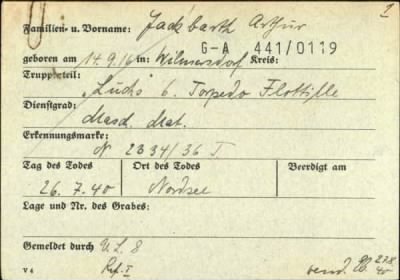 1
Familien- u. Vorname: Jackbarth Arthur
G-A 441/0119
geboren am 14.9.16 in: Wilmersdorf Kreis:
Truppenteil: "Luchs" 6. Torpedo Flottille
Dienstgrad:
Masch. Mat.
Erkennungsmarke:
N 2334/36 T
Tag des Todes Ort des Todes Beerdigt am
26.7.40 Nordsee
Lage und Nr. des Grabes:
Gemeldet durch V.L. 8
V 4 Ref. I